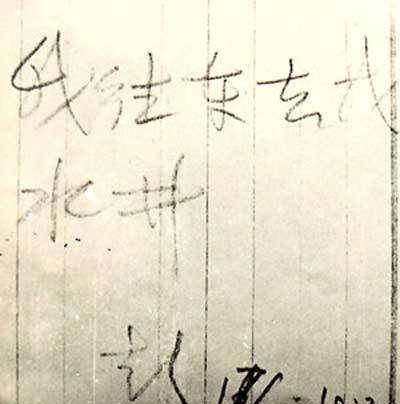 我往东去找
水井
彭